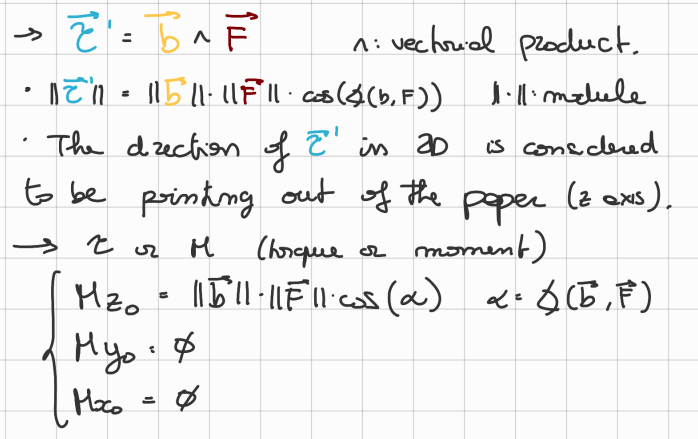 → τ⃗' = b⃗ ∧ F⃗ ∧: vectorial product.
· ||τ⃗'|| = ||b⃗||·||F⃗||·cos(∡(b,F)) ||·||: module
· The direction of τ⃗' in 2D is considered
to be pointing out of the paper (z axis).
→ τ or M (torque or moment)
Mz₀ = ||b⃗||·||F⃗||·cos(α) α = ∡(b⃗,F⃗)
My₀ = ∅
Mx₀ = ∅